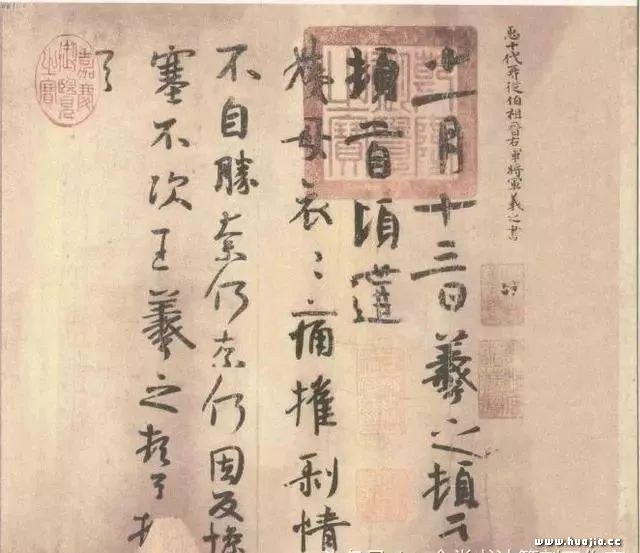 臣十代再從伯祖晉右軍將軍羲之書
十一月十三日羲之頓首
頓首頃遘
姨母哀〻痛摧剝情
不自勝奈何奈何因反慘
塞不次王羲之頓首頓
乾隆御覽之寶
嘉慶御覽之寶
www.huajia.cc